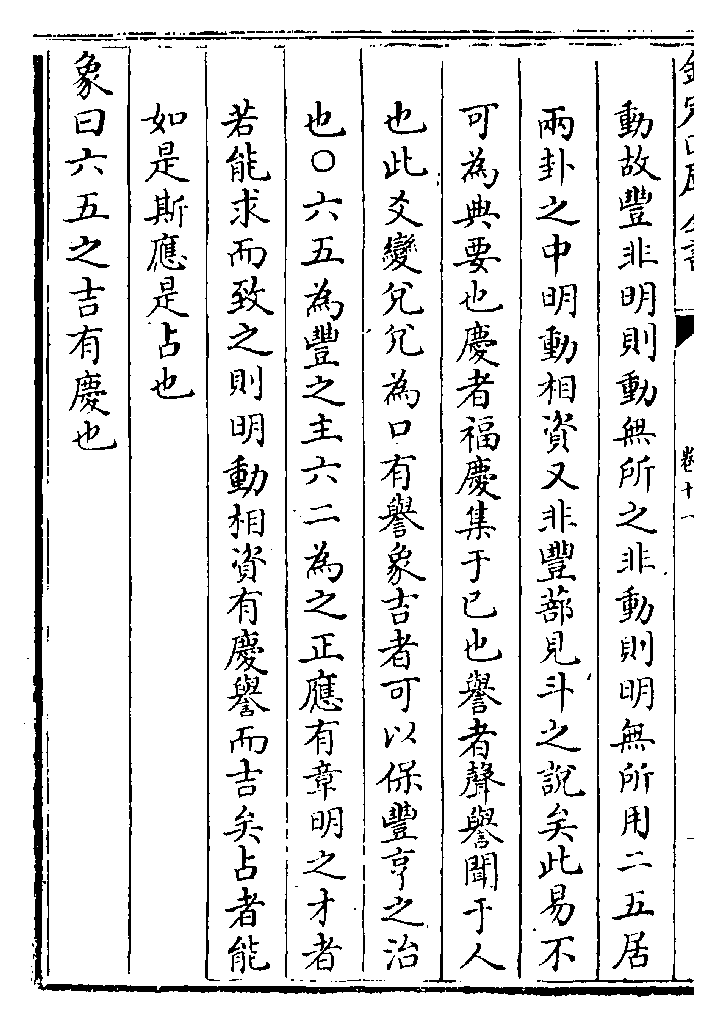 欽定四庫全書
卷十一
動故豐非明則動無所之非動則明無所用二五居
兩卦之中明動相資又非豐蔀見斗之說矣此易不
可為典要也慶者福慶集于已也譽者聲譽聞于人
也此爻變兌兌為口有譽象吉者可以保豐亨之治
也○六五為豐之主六二為之正應有章明之才者
若能求而致之則明動相資有慶譽而吉矣占者能
如是斯應是占也
象曰六五之吉有慶也